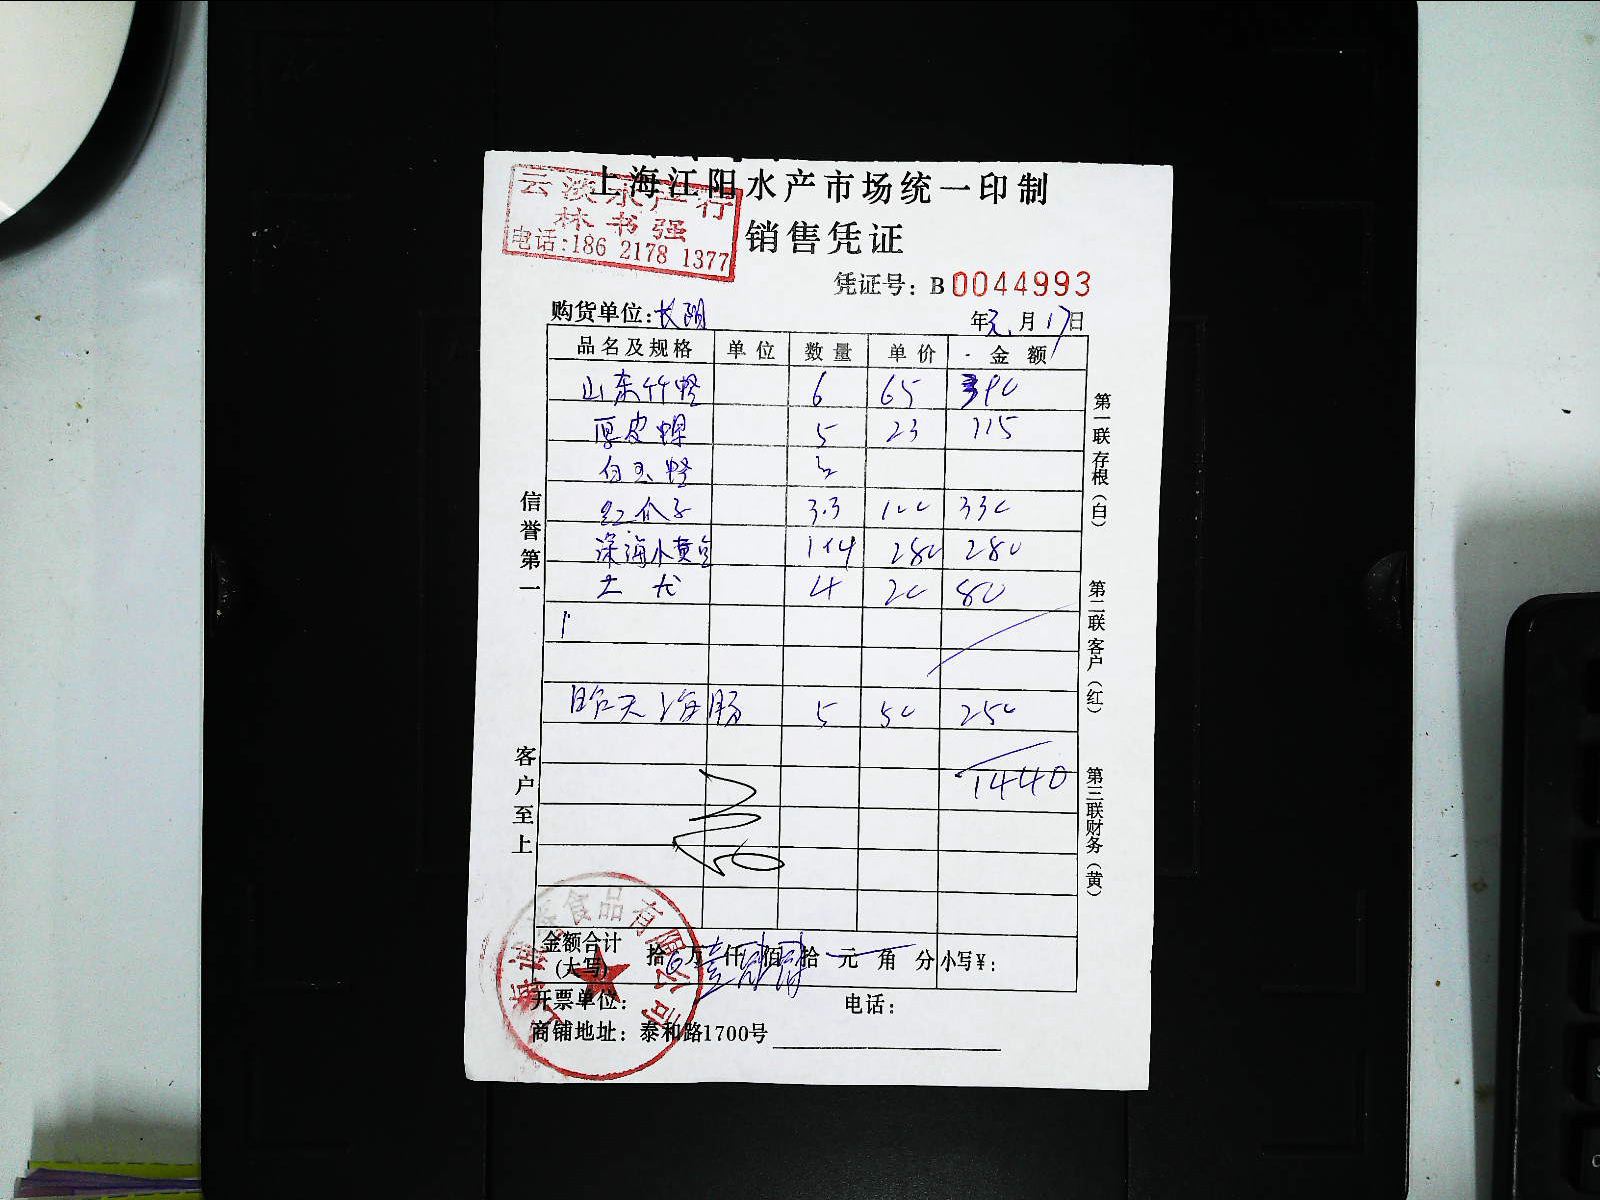 上海江阳水产市场统一印制
云淡水产行
林书强
电话:186 2178 1377
销售凭证
凭证号: B 0044993
购货单位: 长阳 年 元 月 17 日
品名及规格 单位 数量 单价 金额
山东竹蛏 6 65 390
厚皮螺 5 23 115
白玉蛏
红瓜子 3.3 100 330
深海小黄鱼 1×4 280 280
土龙 4 20 80
昨天海肠 5 50 250
1440
信誉第一
客户至上
第一联存根(白)
第二联客户(红)
第三联财务(黄)
金额合计(大写) 拾 万 壹 仟 肆 佰 肆 拾 元 角 分 小写¥:
开票单位: 电话:
商铺地址: 泰和路1700号
食品有限公司